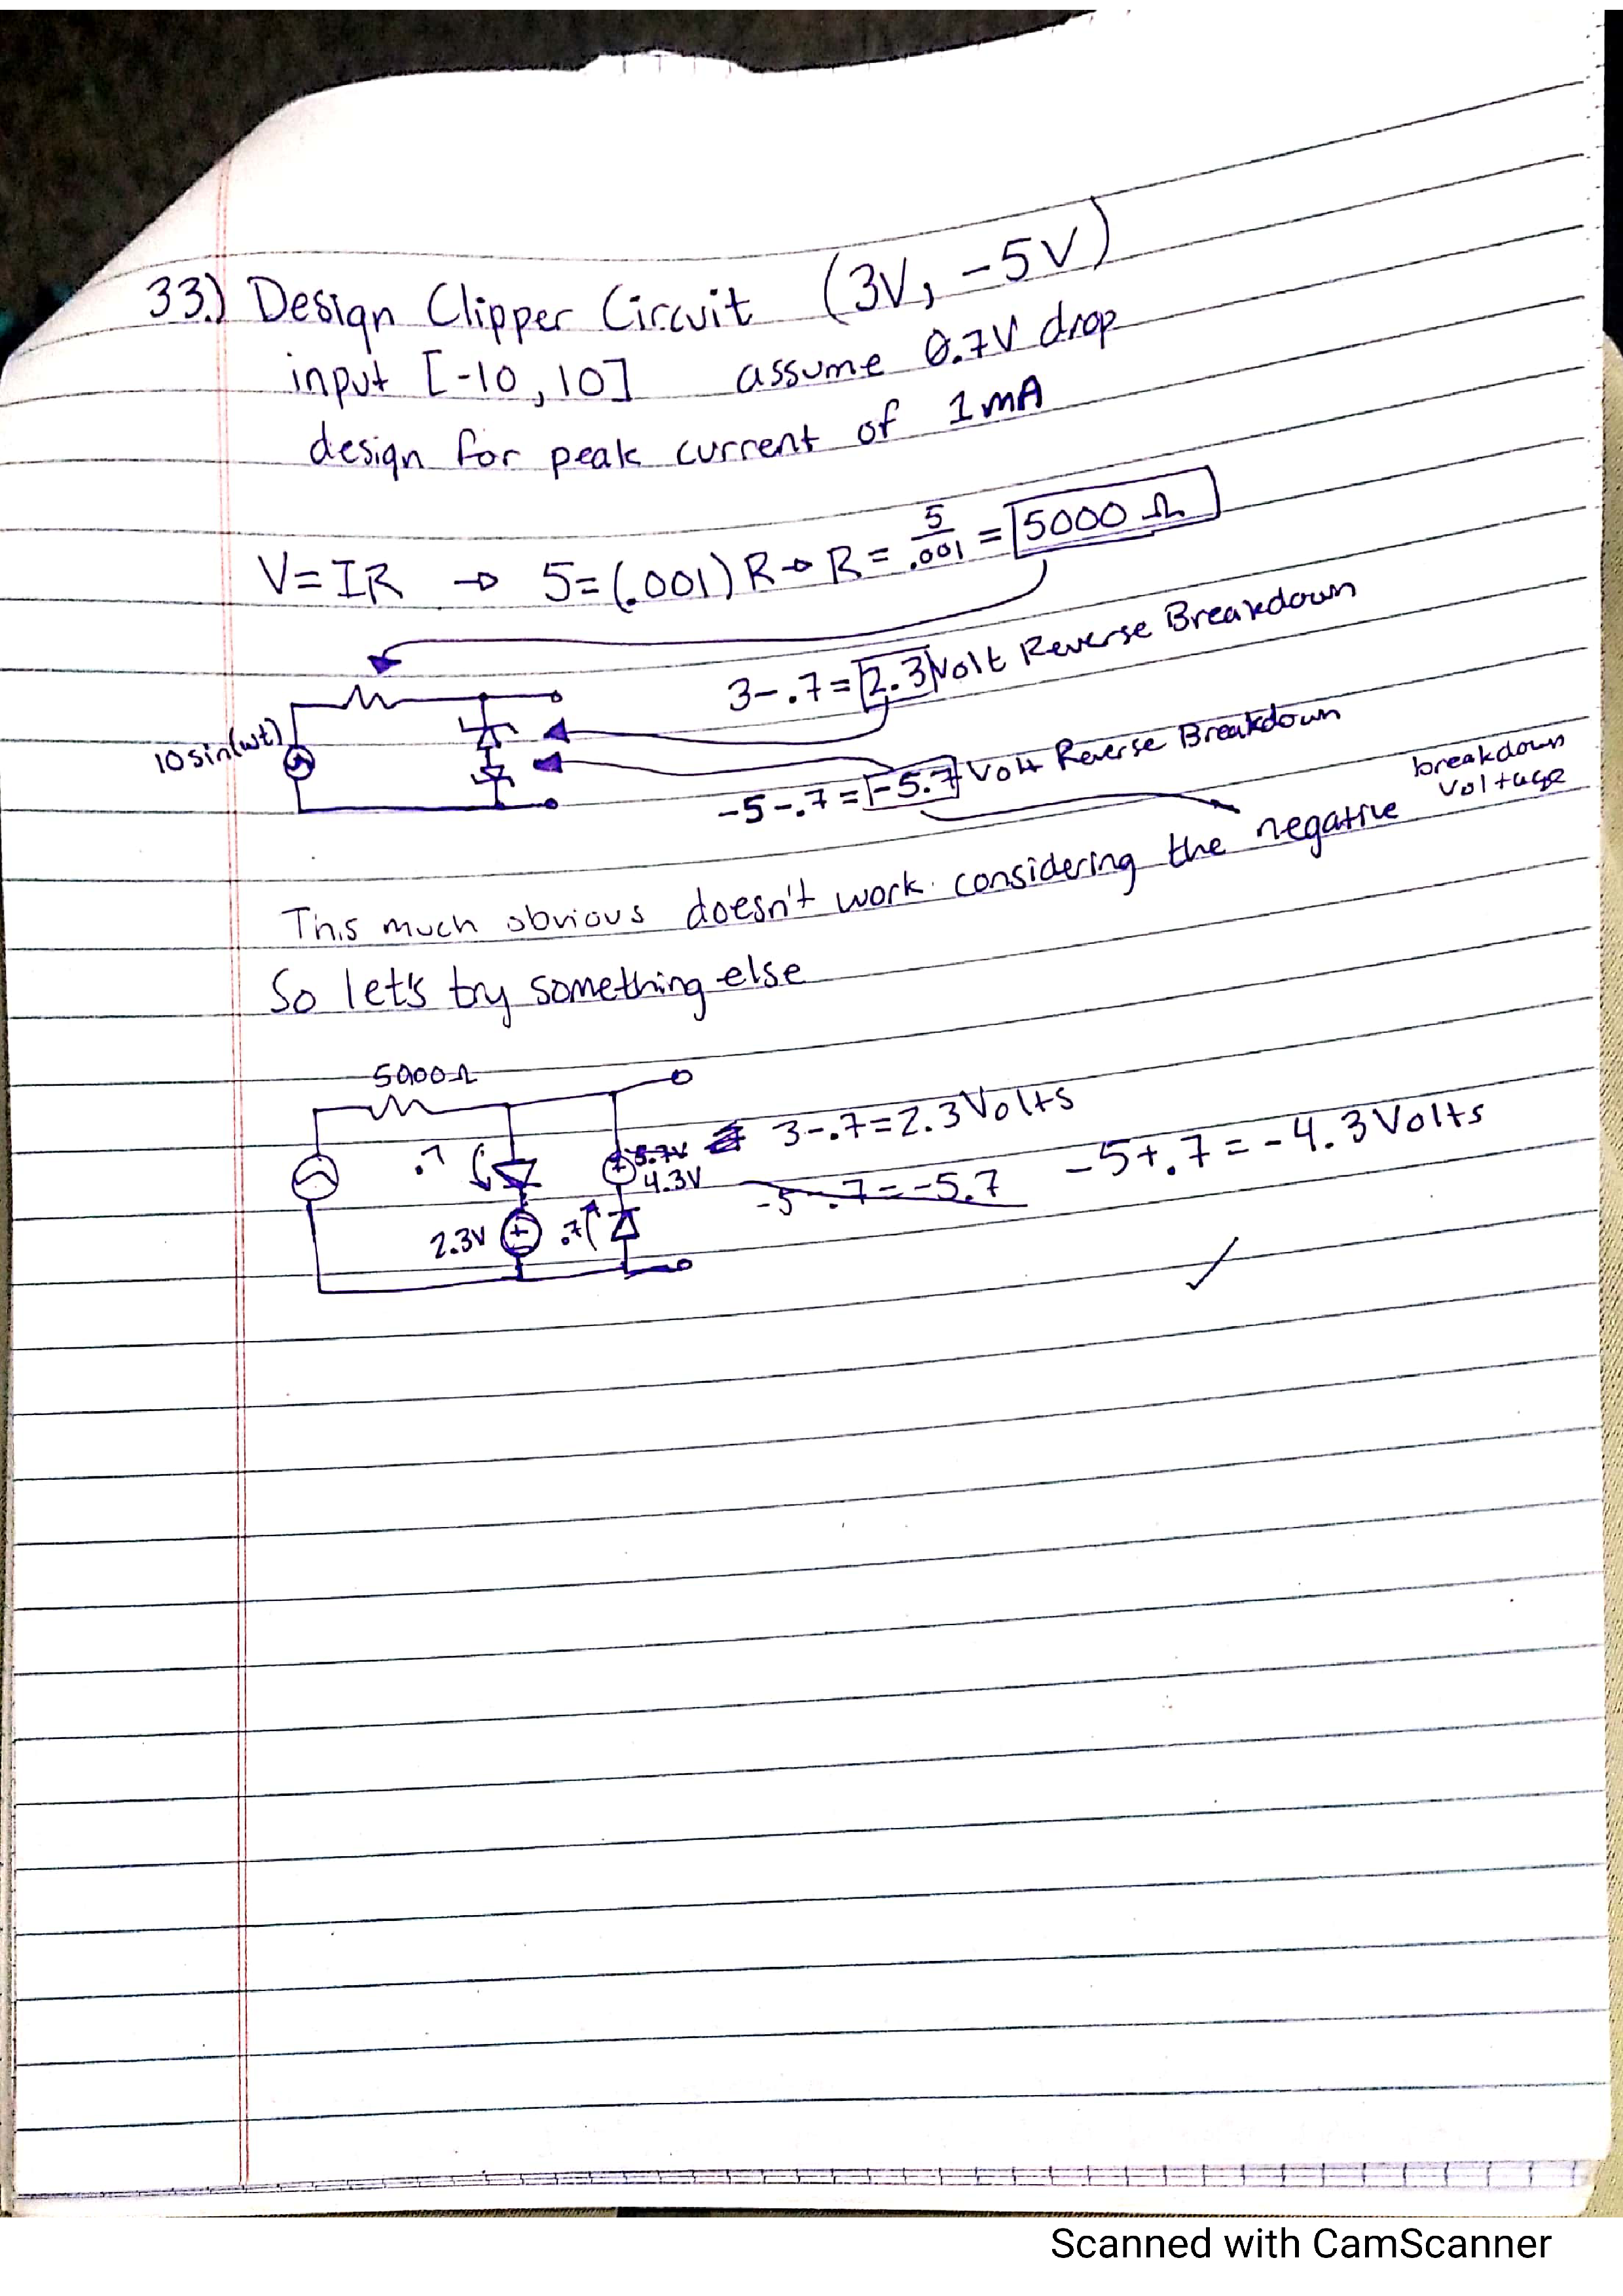 33.) Design Clipper Circuit (3V, -5V)
input [-10, 10] assume 0.7V drop
design for peak current of 1mA
V=IR → 5=(.001)R → R = 5/.001 = 5000 Ω
3-.7=2.3 Volt Reverse Breakdown
10sin(wt)
-5-.7=-5.7 Volt Reverse Breakdown
This much obvious doesn't work considering the negative breakdown voltage
So let's try something else
5000Ω
.7
5.7V
4.3V
3-.7=2.3Volts
-5-.7=-5.7
-5+.7=-4.3Volts
2.3V
+
.7
Scanned with CamScanner